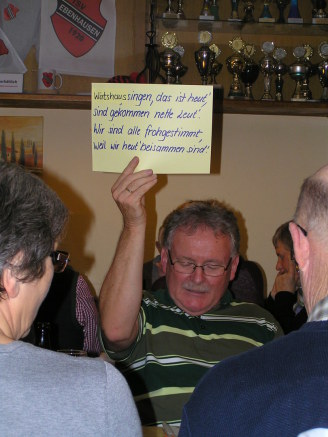 EBENHAUSEN
1930
Watshaussingen, das ist heut',
sind gekommen nette Leut'.
Wir sind alle frohgestimmt,
weil wir heut' beisammen sind!